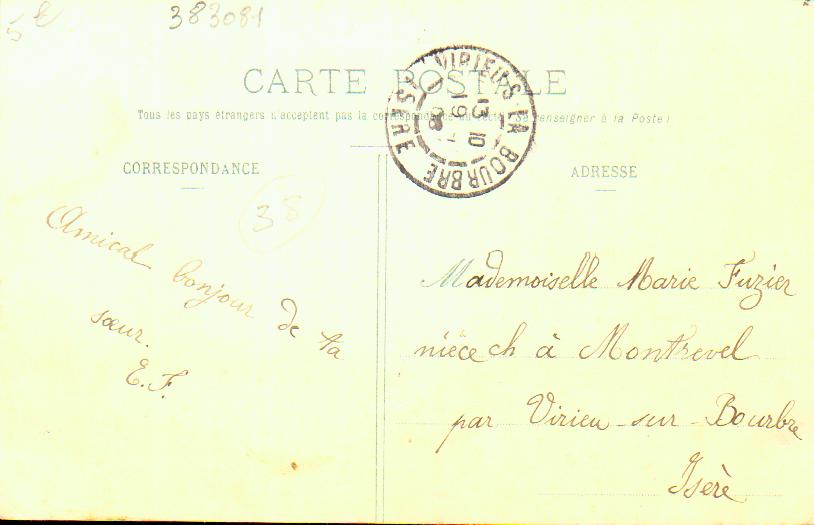 5 €
383081
CARTE POSTALE
Tous les pays étrangers n'acceptent pas la correspondance au recto (Se renseigner à la Poste)
VIRIEU-S-LA BOURBRE
ISÈRE
13 10
19
CORRESPONDANCE
ADRESSE
38
Amical bonjour de ta
sœur.
E. F.
Mademoiselle Marie Fuzier
nièce ch à Montrevel
par Virieu-sur-Bourbre
Isère